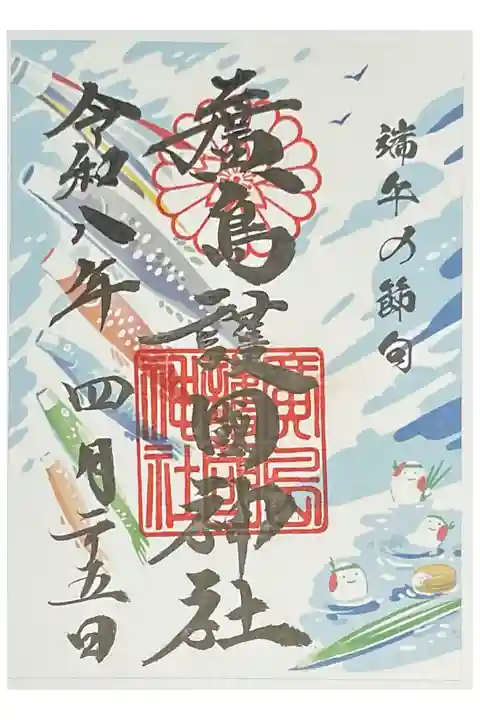 端午の節句
廣島護国神社
令和八年四月二十五日
廣島護國神社